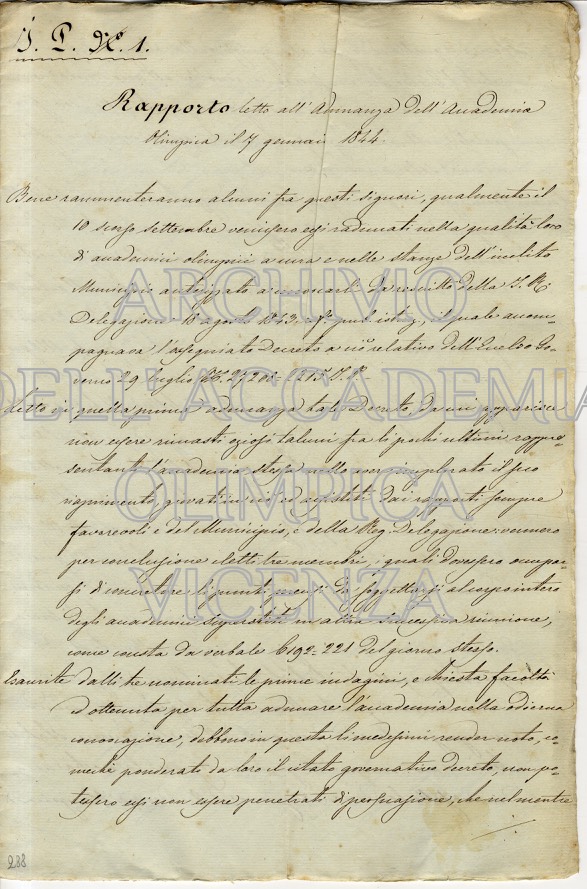 I. P. N.º 1.
Rapporto letto all'Adunanza dell'Accademia
Olimpica il 7 gennaio 1844.
Bene rammenteranno alcuni fra questi signori, qualmente il
10 scorso settembre venissero essi radunati nella qualità loro
di accademici olimpici a cura e nelle stanze dell'inclito
Municipio autorizzato a convocarli da rescritto della I. R.
Delegazione 18 agosto 1843, il quale accom-
pagnava l'ossequiato Decreto a ciò relativo dell'Eccelso Go-
verno 29 luglio N.
Letto in quella prima adunanza tale Decreto, da cui apparisce
non essere rimasti oziosi taluni fra li pochi ultimi rappre-
sentanti l'accademia stessa nello aver implorato il suo
risorgimento, giovati in ciò ed assistiti dai rapporti sempre
favorevoli e del Municipio, e della Reg. Delegazione: vennero
per conclusione eletti tre membri, i quali dovessero occupar-
si di concretare li punti da soggettarsi al corpo intero
degli accademici superstiti in altra successiva riunione,
come consta da verbale 192-221 del giorno stesso.
Esaurite dalli tre nominati le prime indagini, e chiesta facoltà
ed ottenuta per tutta adunare l'accademia nella odierna
convocazione, debbono in questa li medesimi render noto, co-
mechè ponderato da loro il citato governativo decreto, non po-
tessero essi non essere penetrati di persuasione, che nel mentre
288
ARCHIVIO
DELL'ACCADEMIA
OLIMPICA
VICENZA